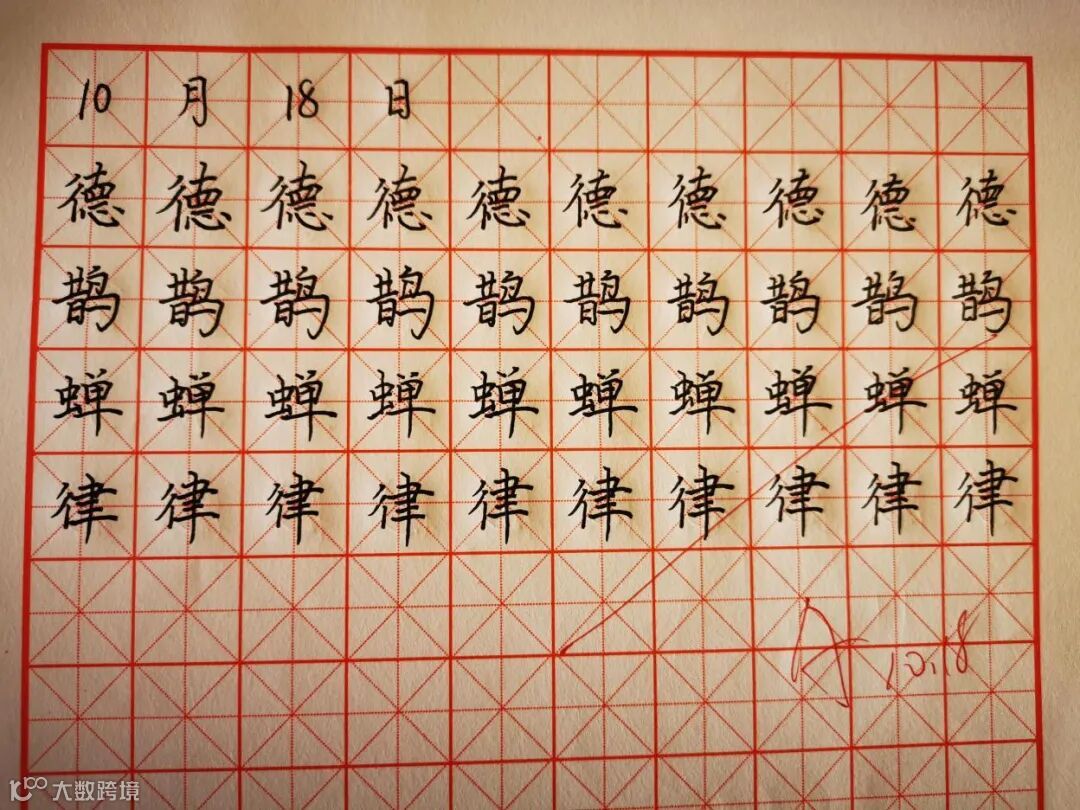 10月18日
德德德德德德德德德德
鹊鹊鹊鹊鹊鹊鹊鹊鹊鹊
蝉蝉蝉蝉蝉蝉蝉蝉蝉蝉
律律律律律律律律律律
10.18
大数跨境